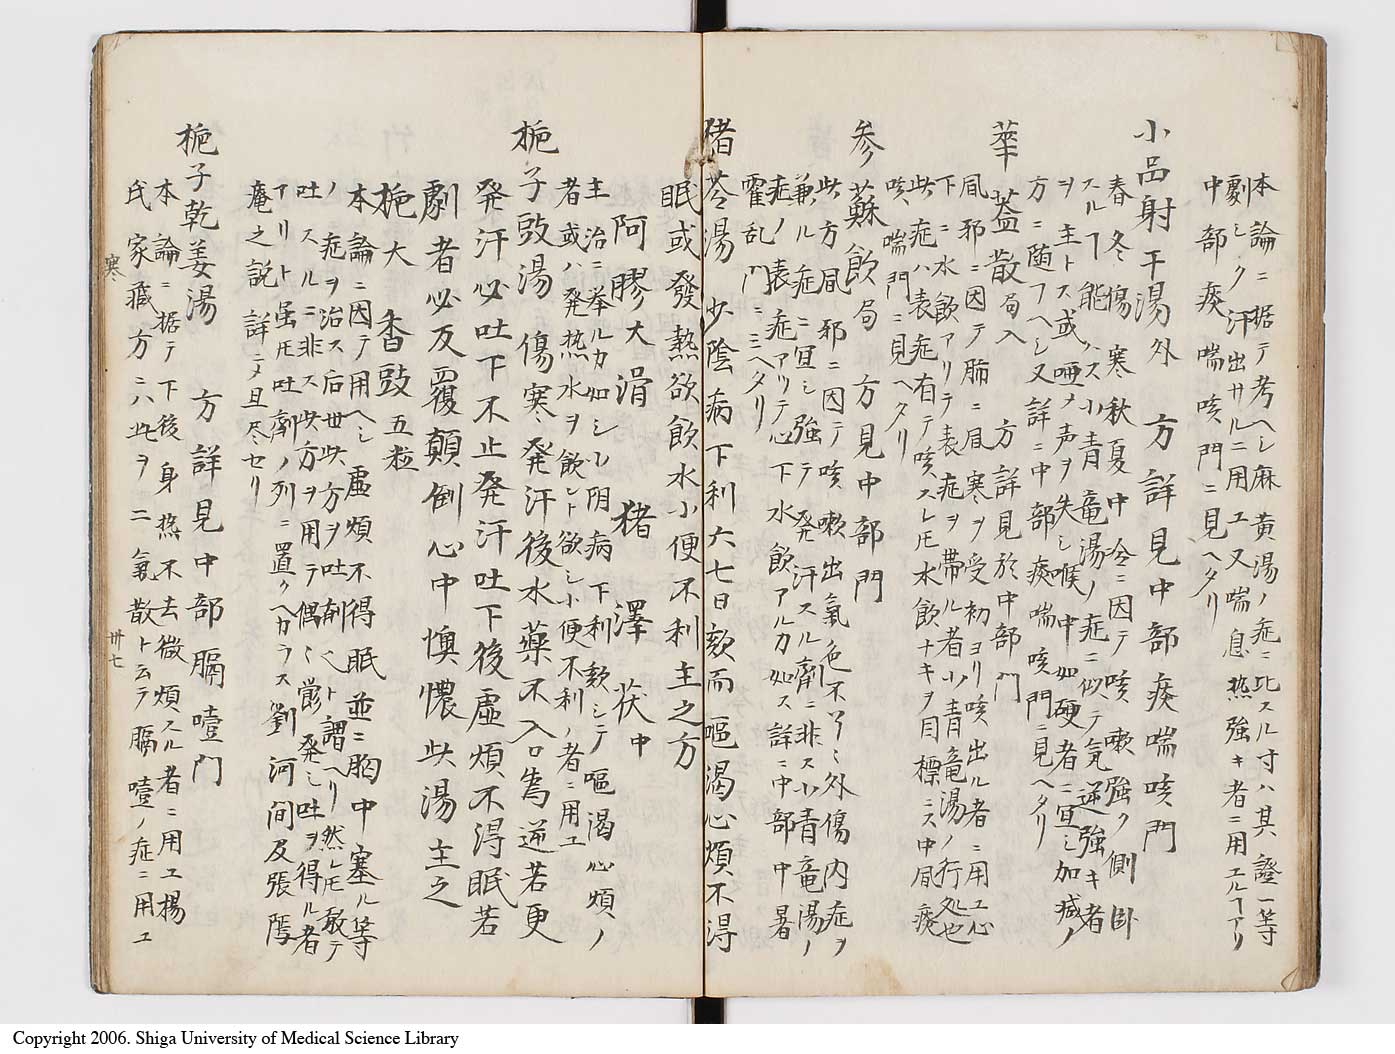 本論ニ据テ考ヘシ麻黄湯ノ症ニ比スル寸ハ其證一等
劇シク汗出サルニ用エ又喘息热強キ者ニ用エルヿアリ
中部痰喘咳門ニ見ヘタリ
小品射干湯外 方詳見中部痰喘咳門
春冬傷寒秋夏中冷ニ因テ咳嗽強ク側臥
スルヿ能ハス小青竜湯ノ症ニ似テ気逆強キ者
ヲ主トス或ハ唖メ声ヲ失シ喉中如硬者ニ宜シ加减ノ
方ニ随フヘシ又詳ニ中部痰喘咳門ニ見ヘタリ
華葢散局八 方詳見於中部門
風邪ニ因テ肺ニ風寒ヲ受初ヨリ咳出ル者ニ用エ心
下ニ水飲アリテ表症ヲ帶ル者小青竜湯ノ行処也
此症ハ表症有テ咳スレ𪜈水飲ナキヲ目標ニス中風痰
咳喘門ニ見ヘタリ
参蘇飲局 方見中部門
此方風邪ニ因テ咳嗽出氣色不々外傷内症ヲ
兼ル症ニ宜シ強テ発汗スル劑ニ非ス小青竜湯ノ
症ノ表症アリテ心下水飲アルカ如ス詳ニ中部中暑
霍乱門ニミヘタリ
猪苓湯 少陰病下利六七日欬而嘔渴心煩不得
眠或發熱欲飲水小便不利主之方
阿膠大 滑 猪 澤 茯中
主治ニ挙ルカ如シ少阴病下利欬シテ嘔渴心煩ノ
者或ハ発热水ヲ飲ント欲シ小便不利ノ者ニ用エ
梔子豉湯 傷寒発汗後水藥不入口為逆若更
発汗必吐下不止発汗吐下後虛煩不得眠若
劇者必反覆顛倒心中懊憹此湯主之
梔大 香豉五粒
本論ニ因テ用ヘシ虛煩不得眠並ニ胸中塞ル等
ノ症ヲ治ス后世此方ヲ吐剤ト謂ヘリ然レ𪜈敢テ
吐スルニ非ス此方ヲ用テ偶々嘗発シ吐ヲ得ル者
アリト虽𪜈吐劑ノ列ニ置クヘカラス劉河間及張隱
庵之説詳ニメ且尽セリ
梔子乾姜湯 方詳見中部膈噎門
本論ニ据テ下後身热不去微煩スル者ニ用エ楊
氏家藏方ニハ此ヲ二氣散ト云ラ膈噎ノ症ニ用エ
寒
卅七
Copyright 2006. Shiga University of Medical Science Library